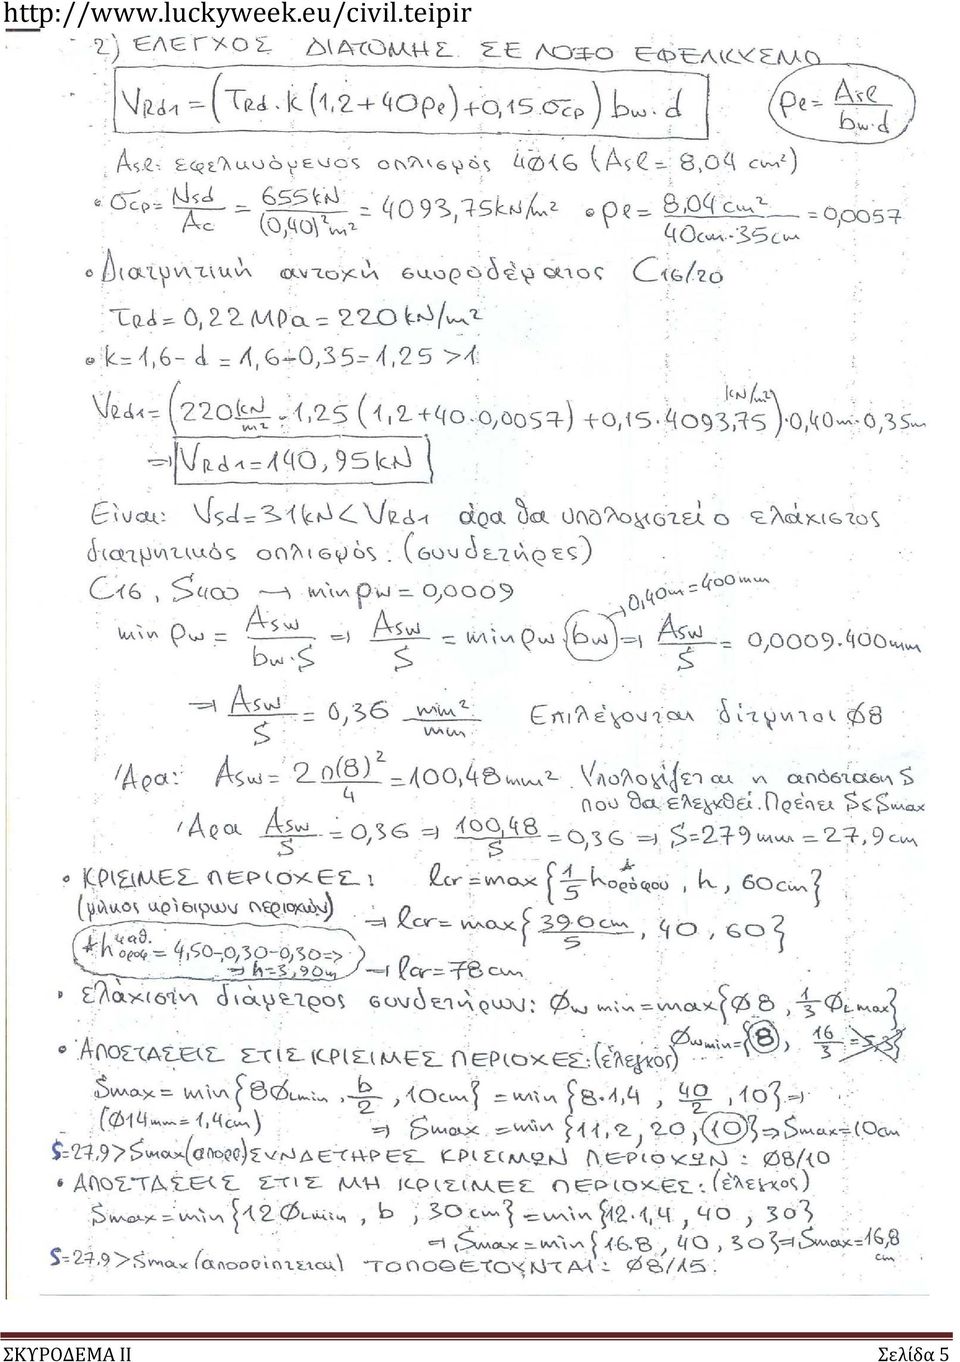 http://www.luckyweek.eu/civil.teipir
2) ΕΛΕΓΧΟΣ ΔΙΑΤΟΜΗΣ ΣΕ ΛΟΞΟ ΕΦΕΛΚΥΣΜΟ
VRd1 = (TRd · k (1,2 + 40ρe) + 0,15 · σcp) bw · d (ρe = Asl / bw·d)
Asl: εφελκυόμενος οπλισμός 4Ø16 (Asl = 8,04 cm²)
• σcp = Nsd / Ac = 655kN / (0,40)² m² = 4093,75kN/m² • ρe = 8,04cm² / 40cm·35cm = 0,0057
• Διατμητική αντοχή σκυροδέματος C16/20
TRd = 0,22 MPa = 220 kN/m²
• k = 1,6 - d = 1,6 - 0,35 = 1,25 > 1
VRd1 = (220 kN/m² · 1,25 (1,2 + 40·0,0057) + 0,15·4093,75 kN/m²) · 0,40m · 0,35m
⇒ VRd1 = 140,95kN
Είναι: Vsd = 31kN < VRd1 άρα θα υπολογιστεί ο ελάχιστος
διατμητικός οπλισμός. (συνδετήρες)
C16, S400 → min ρw = 0,0009
min ρw = Asw / bw·S ⇒ Asw / S = min ρw (bw) → 0,40m = 400mm ⇒ Asw / S = 0,0009·400mm
⇒ Asw / S = 0,36 mm² / mm Επιλέγονται δίτμητοι Ø8
Άρα: Asw = 2 π(8)² / 4 = 100,48mm². Υπολογίζεται η απόσταση S
που θα ελεγχθεί. Πρέπει S ≤ Smax
Άρα Asw / S = 0,36 ⇒ 100,48 / S = 0,36 ⇒ S = 279mm = 27,9cm
• ΚΡΙΣΙΜΕΣ ΠΕΡΙΟΧΕΣ: lcr = max {1/5 h*ορόφου, h, 60cm}
(μήκος κρίσιμων περιοχών) ⇒ lcr = max {390cm / 5, 40, 60}
* h καθ. οροφ = 4,50-0,30-0,30 ⇒
⇒ h = 3,90m ⇒ lcr = 78cm
• Ελάχιστη διάμετρος συνδετήρων: Øw min = max {Ø8, 1/3 ØLmax}
Øwmin = {8, 16/3 = 5,3}
• ΑΠΟΣΤΑΣΕΙΣ ΣΤΙΣ ΚΡΙΣΙΜΕΣ ΠΕΡΙΟΧΕΣ: (έλεγχος)
Smax = min {8ØLmin, b/2, 10cm} = min {8·1,4, 40/2, 10} ⇒
(Ø14mm = 1,4cm) ⇒ Smax = min {11,2, 20, 10} ⇒ Smax = 10cm
S=27,9 > Smax (απορρ) ΣΥΝΔΕΤΗΡΕΣ ΚΡΙΣΙΜΩΝ ΠΕΡΙΟΧΩΝ: Ø8/10
• ΑΠΟΣΤΑΣΕΙΣ ΣΤΙΣ ΜΗ ΚΡΙΣΙΜΕΣ ΠΕΡΙΟΧΕΣ: (έλεγχος)
Smax = min {12 ØLmin, b, 30cm} = min {12·1,4, 40, 30}
⇒ Smax = min {16.8, 40, 30} ⇒ Smax = 16,8 cm
S=27,9 > Smax (απορρίπτεται) ΤΟΠΟΘΕΤΟΥΝΤΑΙ: Ø8/15
ΣΚΥΡΟΔΕΜΑ ΙΙ Σελίδα 5